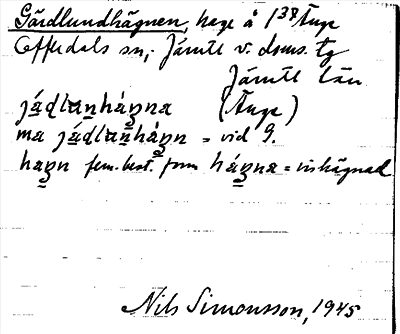 Gärdlundhägnen, hage å 1³⁸ Änge
Offerdals sn, Jämtl. v. doms. tg
Jämtl. län
jádlanhágna (Änge)
ma jádlanhágn = vid G.
hagn fem. best. form hágna = inhägnad
Nils Simonsson, 1945